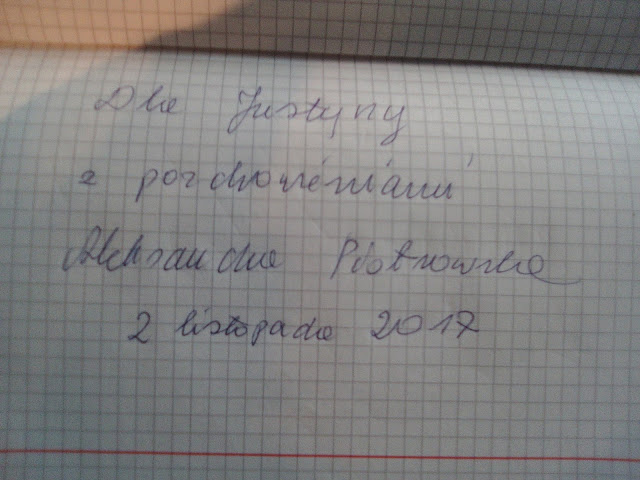 Dla Justyny
z pozdrowieniami
Aleksandra Piotrowska
2 listopada 2017